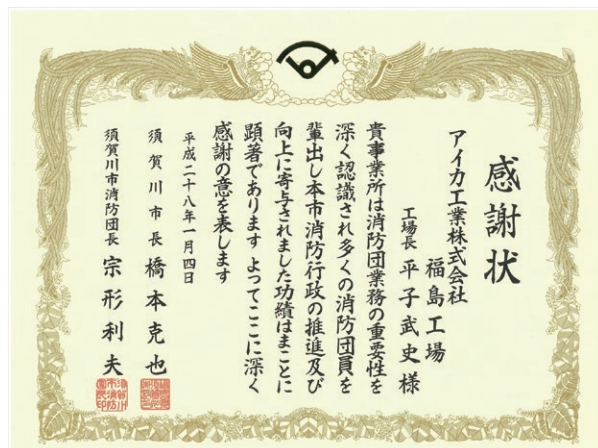 感謝状
アイカ工業株式会社
福島工場
工場長 平子武史様
貴事業所は消防団業務の重要性を
深く認識され多くの消防団員を
輩出し本市消防行政の推進及び
向上に寄与されました功績はまことに
顕著であります よってここに深く
感謝の意を表します
平成二十八年一月四日
須賀川市長 橋本克也
須賀川市消防団長 宗形利夫